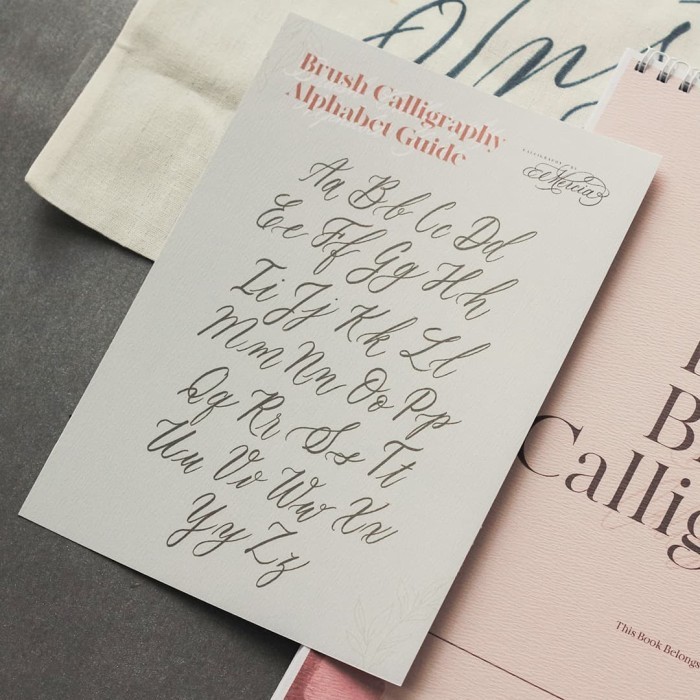 Brush Calligraphy
Alphabet Guide
CALLIGRAPHY BY
Aa Bb Cc Dd
Ee Ff Gg Hh
Ii Jj Kk Ll
Mm Nn Oo Pp
Qq Rr Ss Tt
Uu Vv Ww Xx
Yy Zz
Callig
This Book Belongs